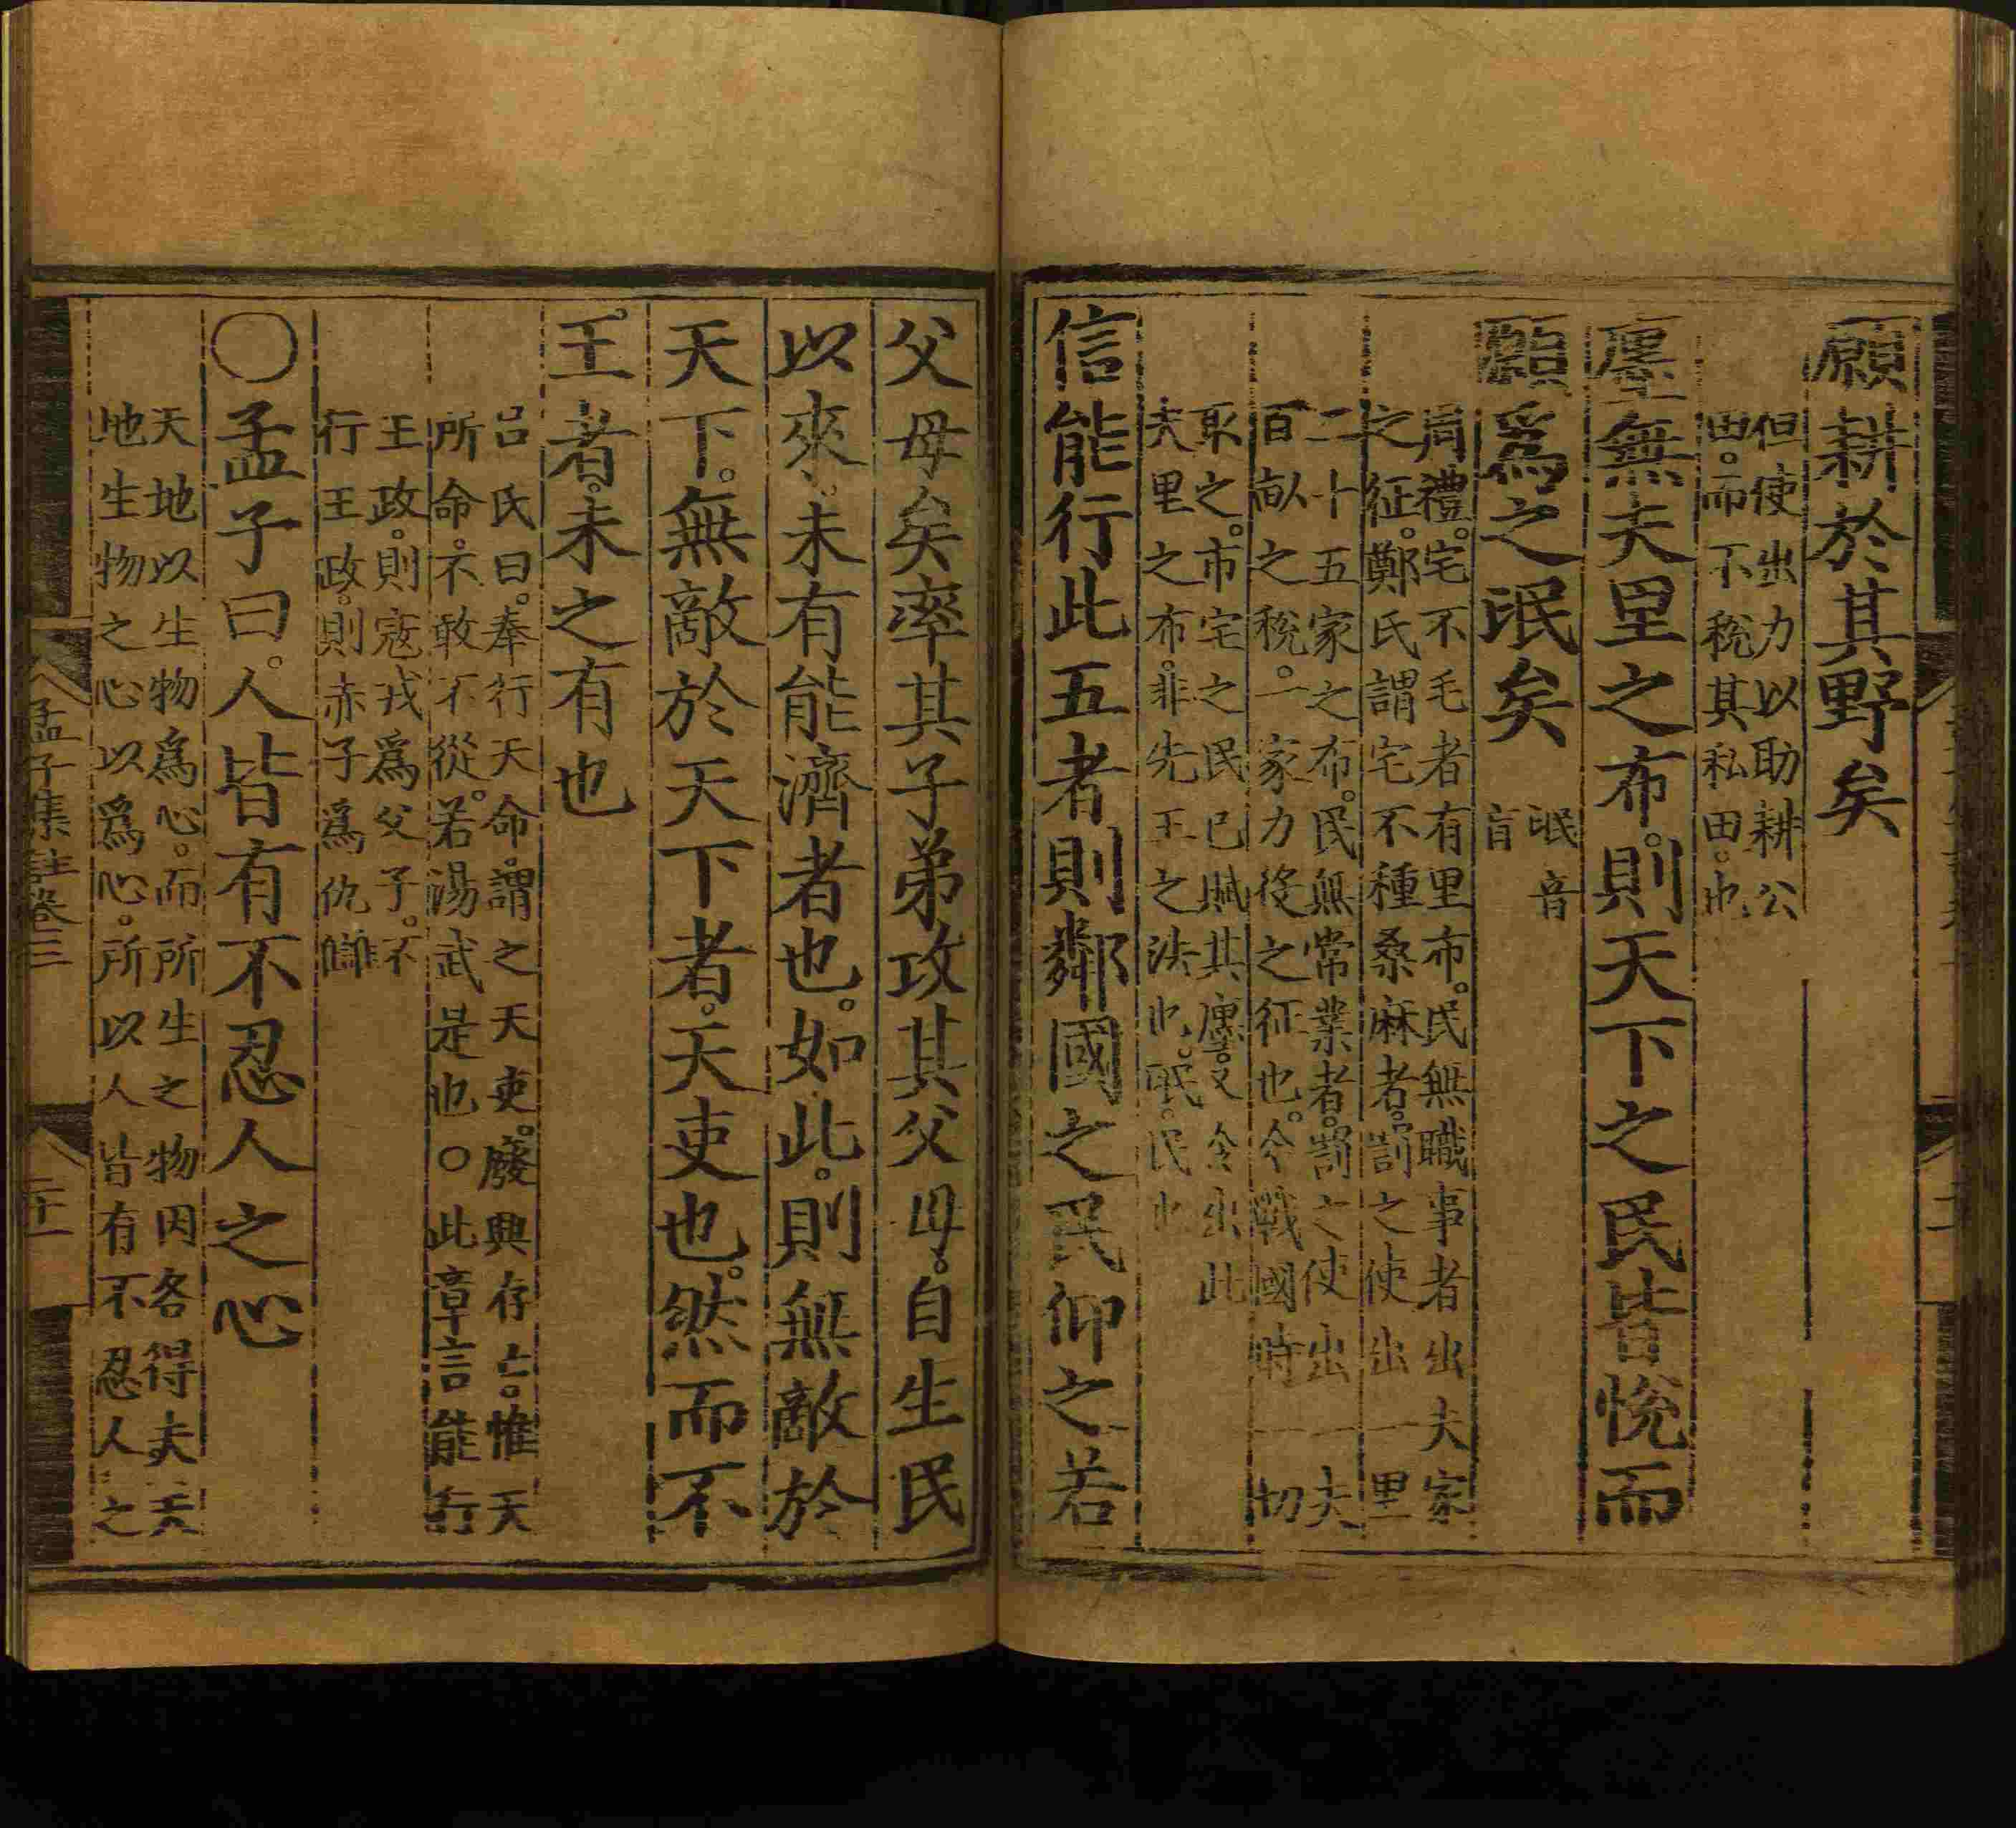 願耕於其野矣
但使出力以助耕公
田。而不稅其私田。也
廛無夫里之布。則天下之民皆悅而
願爲之氓矣
氓音
盲
周禮。宅不毛者有里布。民無職事者出夫家
之征。鄭氏謂宅不種桑麻者。罰之使出一里
二十五家之布。民無常業者。罰之使出一夫
百畝之稅。一家力役之征也。今戰國時一切
取之。市宅之民已賦其廛。又令出此
夫里之布。非先王之法也。氓。民也
信能行此五者則鄰國之民仰之若
父母矣率其子弟攻其父母。自生民
以來。未有能濟者也。如此。則無敵於
天下。無敵於天下者。天吏也。然而不
王者。未之有也
呂氏曰。奉行天命。謂之天吏。廢興存亡。惟天
所命。不敢不從。若湯武是也○此章言能行
王政。則寇戎爲父子。不
行王政。則赤子爲仇讎
○孟子曰。人皆有不忍人之心
天地以生物爲心。而所生之物因各得夫天
地生物之心以爲心。所以人皆有不忍人之
孟子集註卷三